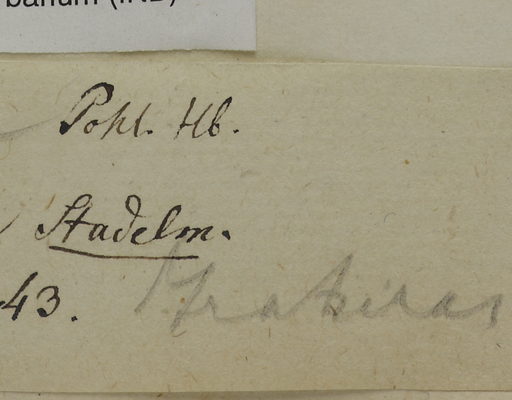 barium (IND)
Pohl. Hb.
Stadelm.
43.